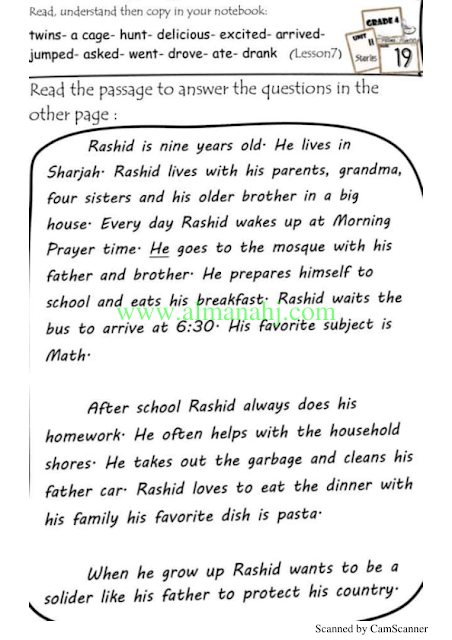 Read, understand then copy in your notebook:
twins- a cage- hunt- delicious- excited- arrived-
jumped- asked- went- drove- ate- drank (Lesson7)
GRADE 4
UNIT
11
Stories
19
Read the passage to answer the questions in the
other page :
Rashid is nine years old. He lives in
Sharjah. Rashid lives with his parents, grandma,
four sisters and his older brother in a big
house. Every day Rashid wakes up at Morning
Prayer time. He goes to the mosque with his
father and brother. He prepares himself to
school and eats his breakfast. Rashid waits the
www.almanahj.com
bus to arrive at 6:30. His favorite subject is
Math.
After school Rashid always does his
homework. He often helps with the household
shores. He takes out the garbage and cleans his
father car. Rashid loves to eat the dinner with
his family his favorite dish is pasta.
When he grow up Rashid wants to be a
solider like his father to protect his country.
Scanned by CamScanner